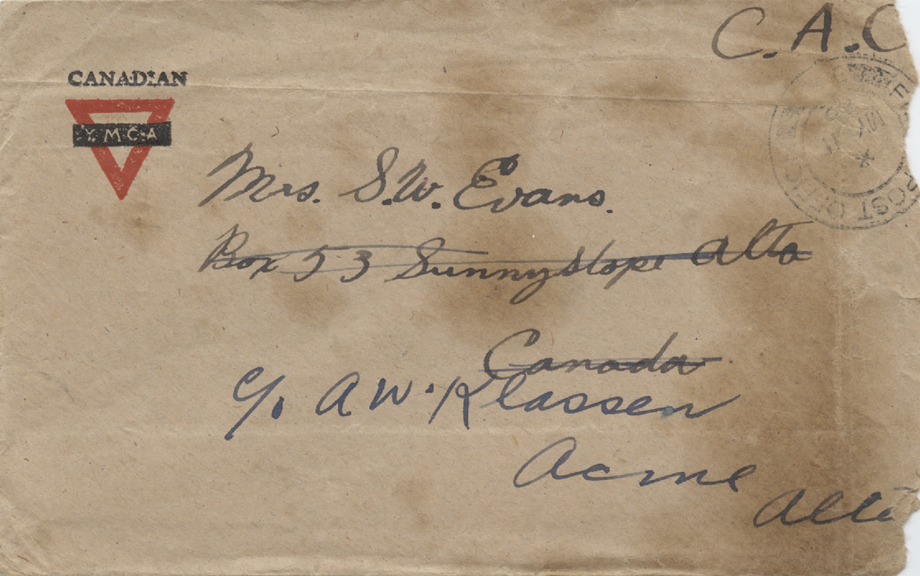 C.A.C
CANADIAN
Y.M.C.A
POST OFFIC
Mrs. S.W. Evans.
Box 53 Sunnyslope Alta
Canada
c/o A W. Klassen
Acme
Alta